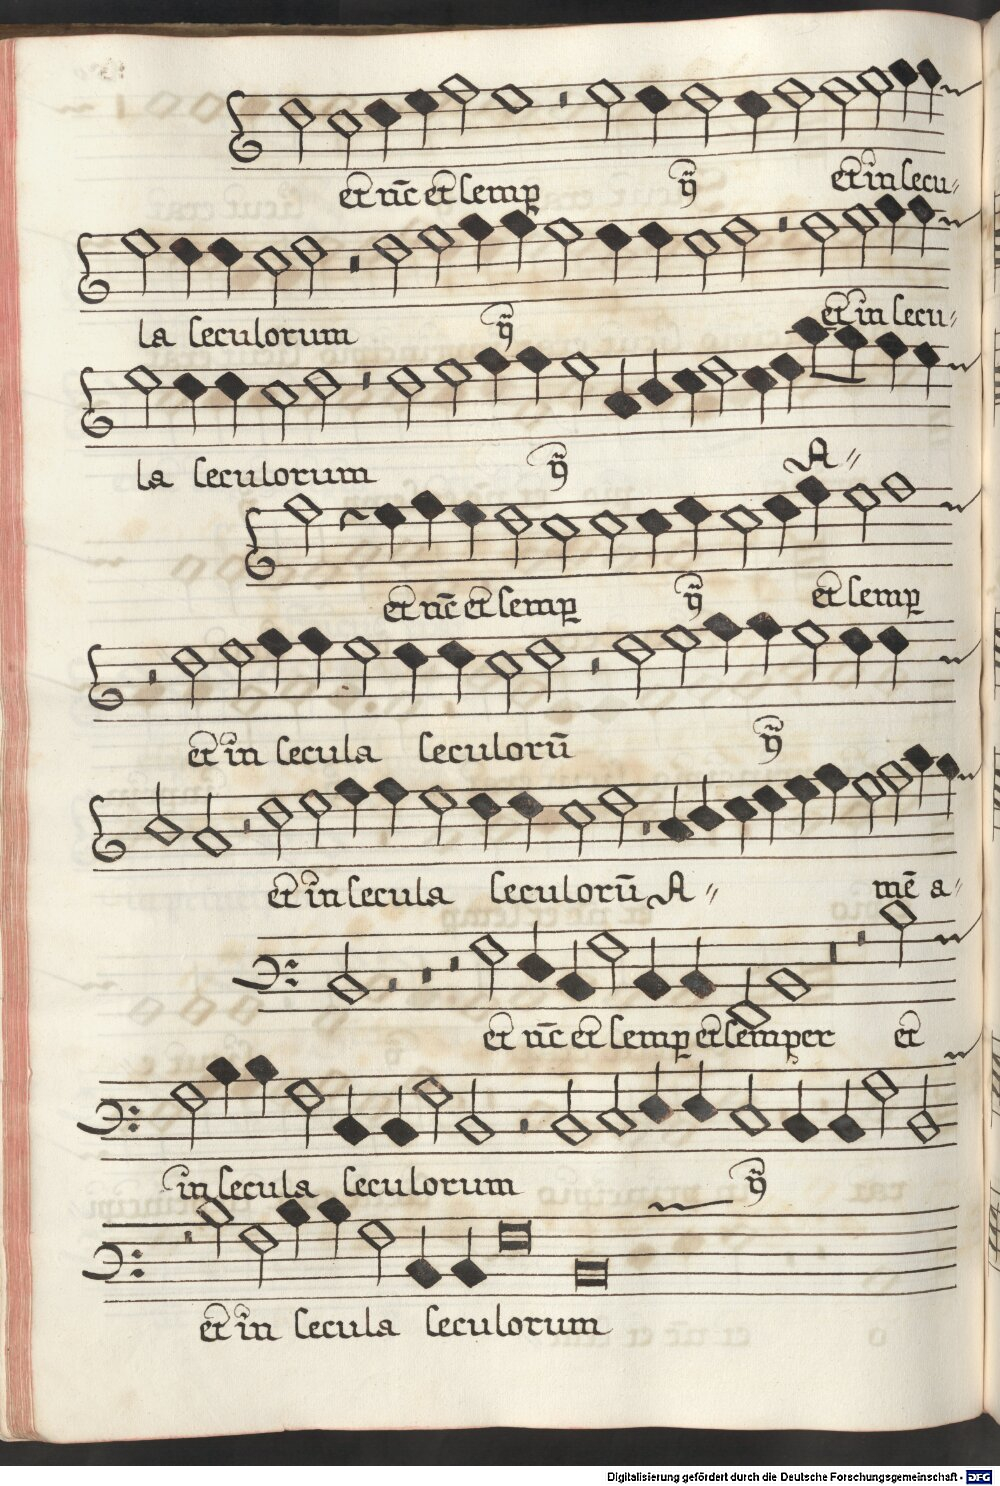 et nc̄ et semꝑ ij et in secu⸗
la seculorum ij et in secu⸗
la seculorum ij A⸗
et nc̄ et semꝑ ij et semꝑ
et in secula seculorū ij
et in secula seculorū A⸗ mē a⸗
et nc̄ et semꝑ et semper et
in secula seculorum ij
et in secula seculorum
Digitalisierung gefördert durch die Deutsche Forschungsgemeinschaft - DFG